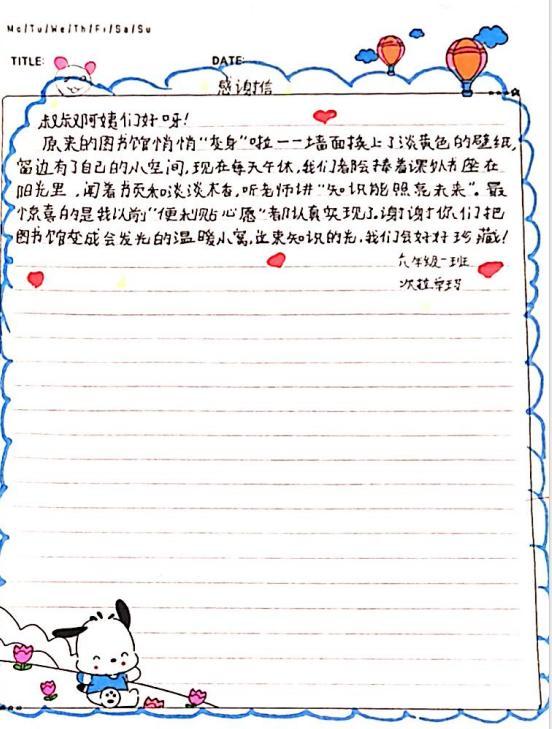 Mo/Tu/We/Th/Fr/Sa/Su
TITLE:
DATE:
感谢信
叔叔阿姨们好呀！
原来的图书馆悄悄“变身”啦——墙面换上了淡黄色的壁纸，
窗边有了自己的小空间，现在每天午休，我们都会捧着课外书座在
阳光里，闻着书页和淡淡木香，听老师讲“知识能照亮未来”。最
惊喜的是我以前“便利贴心愿”都认真实现了。谢谢你们把
图书馆变成会发光的温暖小窝，这束知识的光，我们会好好珍藏！
六年级一班
次拉卓玛